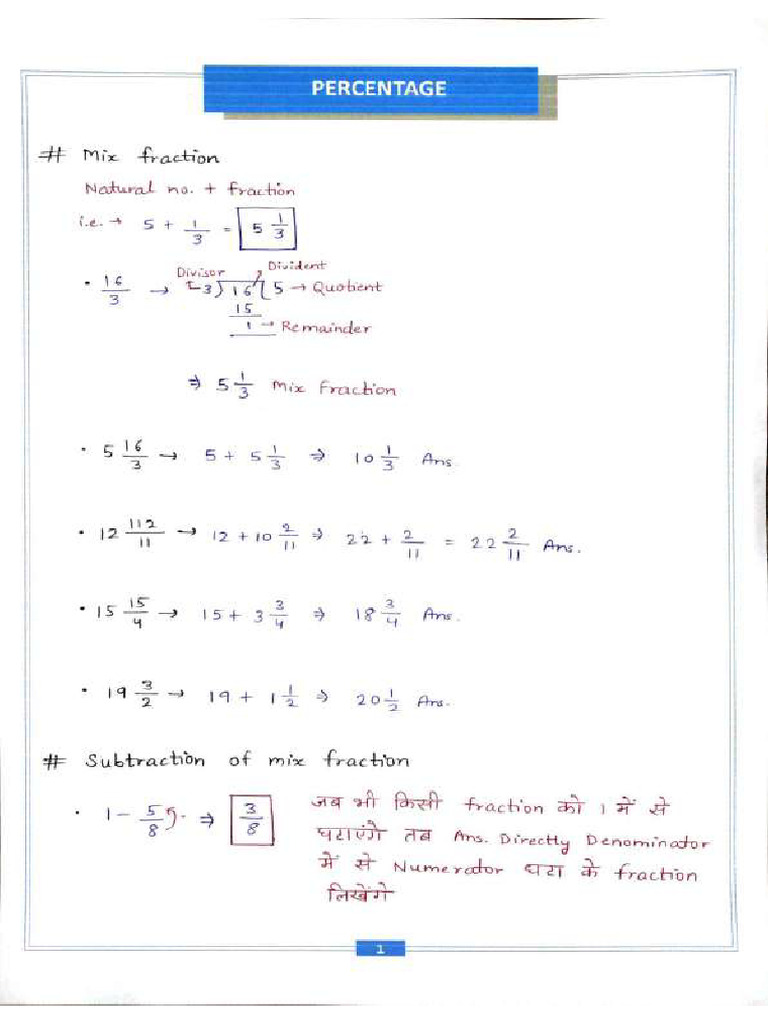 PERCENTAGE
# Mix fraction
Natural no. + fraction
i.e. → 5 + 1/3 = 5 1/3
Divisor Divident
• 16/3 → 3) 16 ( 5 → Quotient
15
1 → Remainder
⇒ 5 1/3 Mix Fraction
• 5 16/3 → 5 + 5 1/3 ⇒ 10 1/3 Ans.
• 12 112/11 → 12 + 10 2/11 ⇒ 22 + 2/11 = 22 2/11 Ans.
• 15 15/4 → 15 + 3 3/4 ⇒ 18 3/4 Ans.
• 19 3/2 → 19 + 1 1/2 ⇒ 20 1/2 Ans.
# Subtraction of mix fraction
• 1 - 5/8 ⇒ 3/8 जब भी किसी fraction को 1 में से
घटाएंगे तब Ans. Directly Denominator
में से Numerator घटा के fraction
लिखेंगे
1